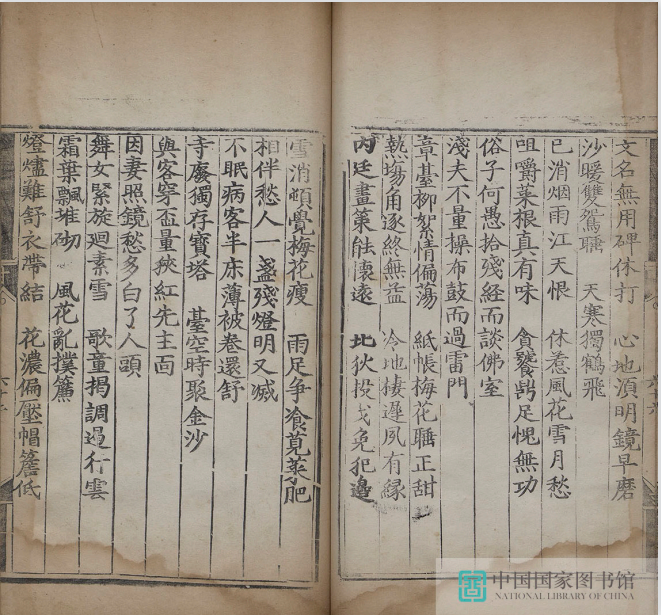 文名無用碑休打　心地湏明鏡早磨
沙暖雙鴛睡　天寒獨鶴飛
已消烟雨江天恨　休惹風花雪月愁
咀嚼菜根真有味　貪饕鼎足愧無功
俗子何愚拾殘經而談佛室
淺夫不量操布鼓而過雷門
章臺柳絮情偏蕩　紙帳梅花睡正甜
熱塲角逐終無益　冷地棲遲夙有緣
內廷畫策能懷遠　北狄投戈免犯邊
雪消頓覺梅花瘦　雨足争飡莧菜肥
相伴愁人一盞殘燈明又滅
不眠病客半床薄被卷還舒
寺廢獨存寶塔　臺空時聚金沙
與客穿盃量狹紅先主面
因妻照鏡愁多白了人頭
舞女緊旋廻素雪　歌童揭調遏行雲
霜葉飄堆砌　風花亂撲簷
燈燼難舒衣帶結　花濃偏壓帽簷低
六十六
六十六
中国国家图书馆
NATIONAL LIBRARY OF CHINA